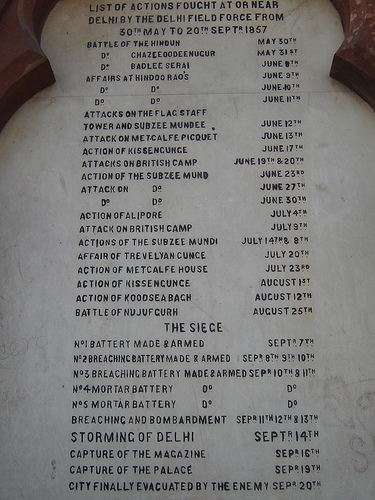 LIST OF ACTIONS FOUGHT AT OR NEAR
DELHI BY THE DELHI FIELD FORCE FROM
30TH MAY TO 20TH SEPTR 1857
BATTLE OF THE HINDUN MAY 30TH
DO CHAZEEOODEENUGUR MAY 31ST
DO BADLEE SERAI JUNE 8TH
AFFAIRS AT HINDOO RAO'S JUNE 9TH
DO DO JUNE 10TH
DO DO JUNE 11TH
ATTACKS ON THE FLAG STAFF
TOWER AND SUBZEE MUNDEE JUNE 12TH
ATTACK ON METCALFE PICQUET JUNE 13TH
ACTION OF KISSENGUNGE JUNE 17TH
ATTACKS ON BRITISH CAMP JUNE 19TH & 20TH
ACTION OF THE SUBZEE MUND JUNE 23RD
ATTACK ON DO JUNE 27TH
DO DO JUNE 30TH
ACTION OF ALIPORE JULY 4TH
ATTACK ON BRITISH CAMP JULY 9TH
ACTIONS OF THE SUBZEE MUNDI JULY 14TH & 18TH
AFFAIR OF TREVELYAN GUNGE JULY 20TH
ACTION OF METCALFE HOUSE JULY 23RD
ACTION OF KISSENGUNGE AUGUST 1ST
ACTION OF KOODSEA BAGH AUGUST 12TH
BATTLE OF NUJUFGURH AUGUST 25TH
THE SIEGE
NO1 BATTERY MADE & ARMED SEPTR 7TH
NO2 BREACHING BATTERY MADE & ARMED SEPR 8TH 9TH 10TH
NO3 BREACHING BATTERY MADE & ARMED SEPR 10TH & 11TH
NO4 MORTAR BATTERY DO DO
NO5 MORTAR BATTERY DO DO
BREACHING AND BOMBARDMENT SEPR 11TH 12TH & 13TH
STORMING OF DELHI SEPTR 14TH
CAPTURE OF THE MAGAZINE SEPR 16TH
CAPTURE OF THE PALACE SEPR 19TH
CITY FINALLY EVACUATED BY THE ENEMY SEPR 20TH